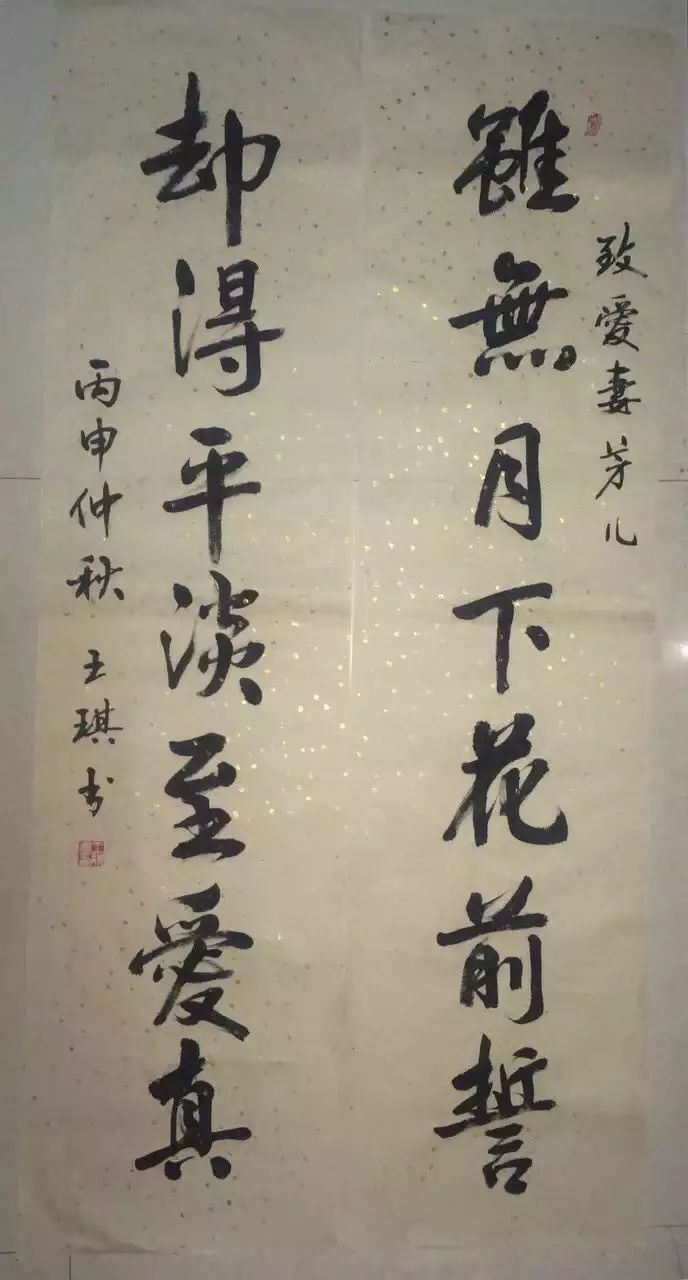 致愛妻芳儿
雖無月下花前誓
却得平淡至愛真
丙申仲秋 王琪书